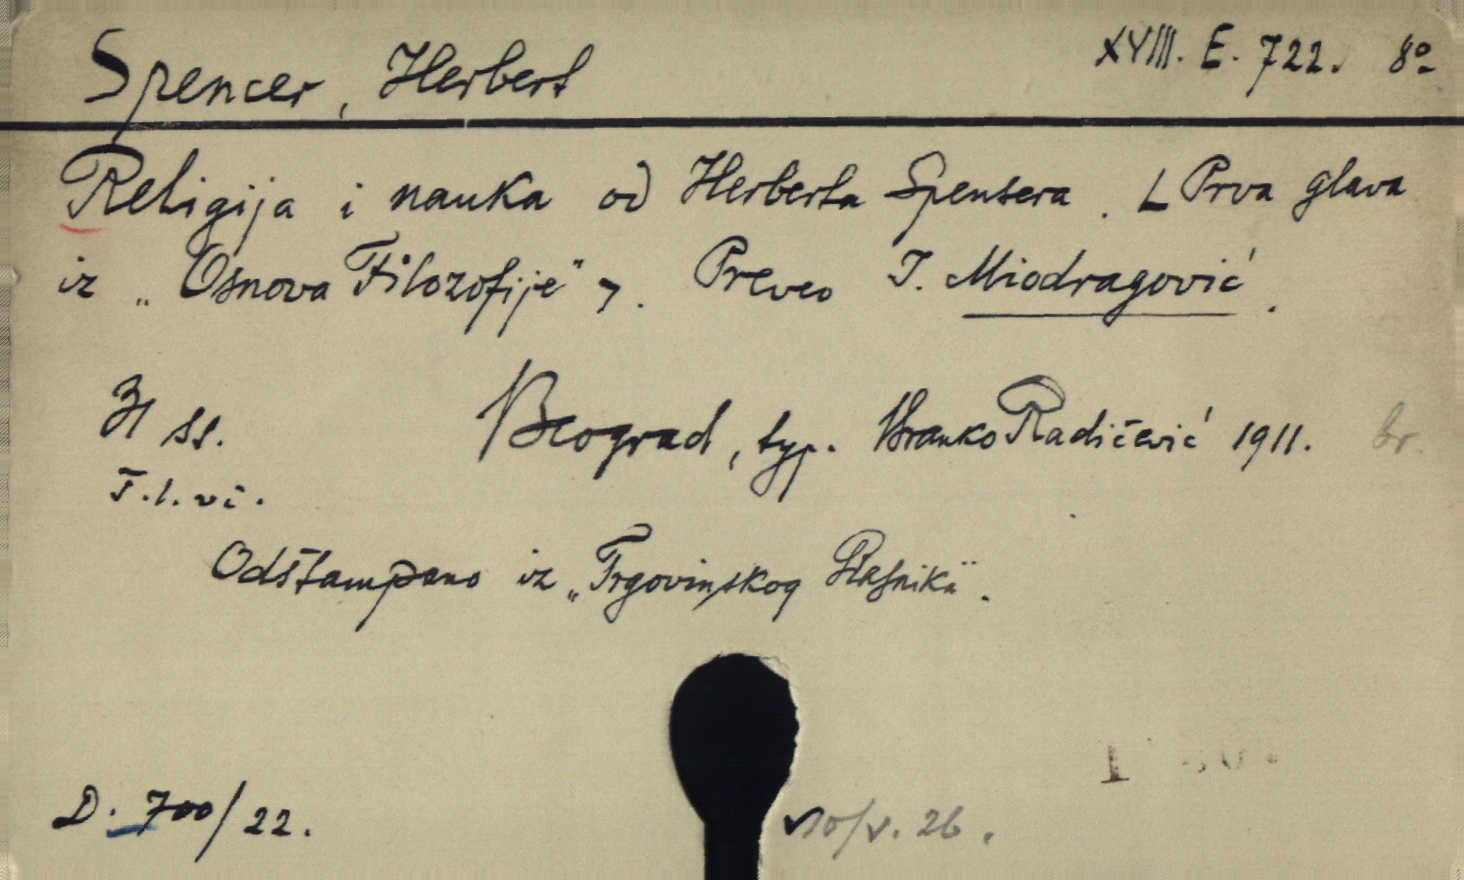 Spencer, Herbert XVIII. E. 722. 8º
Religija i nauka od Herberta Spensera. [Prva glava
iz „Osnova Filozofije"]. Preveo J. Miodragović.
31 ss. Beograd, typ. Branko Radičević 1911. br.
T. l. vč.
Odštampano iz „Trgovinskog Glasnika".
D. 700/22. 10/V. 26.